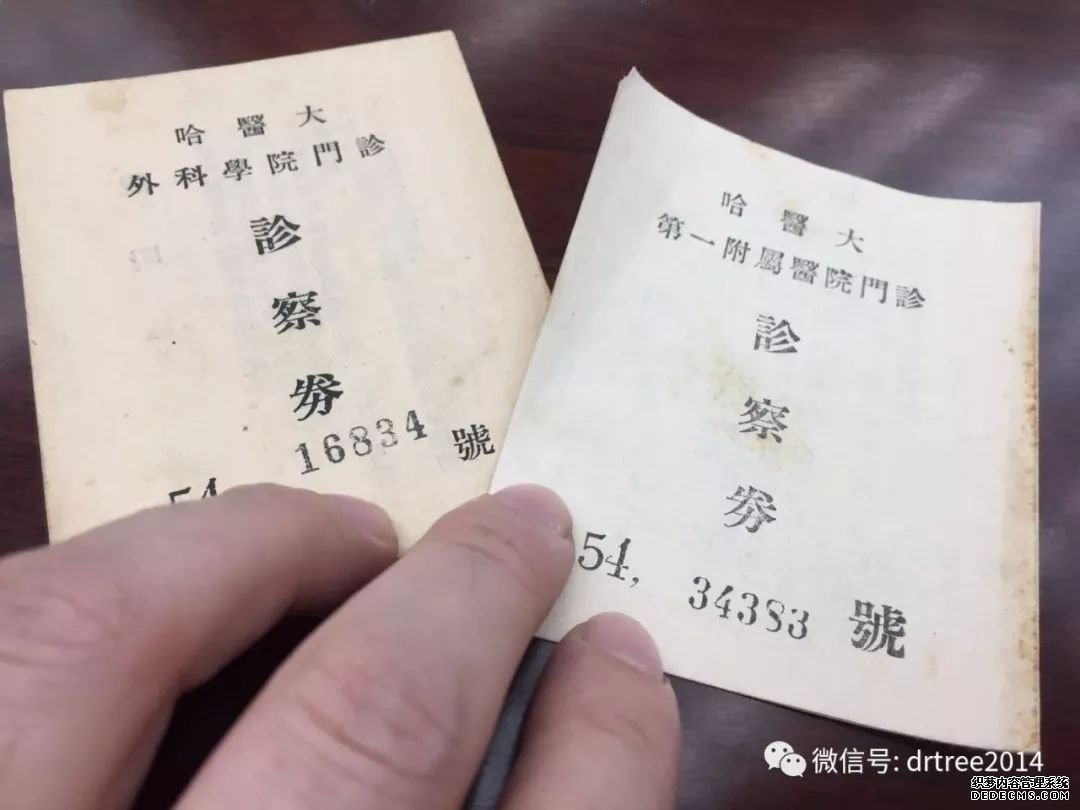 哈醫大
外科學院門診
診
察
券
16834 號
54
哈醫大
第一附屬醫院門診
診
察
券
54, 34383 號
微信号: drtree2014
织梦内容管理系统
DEDECMS.COM